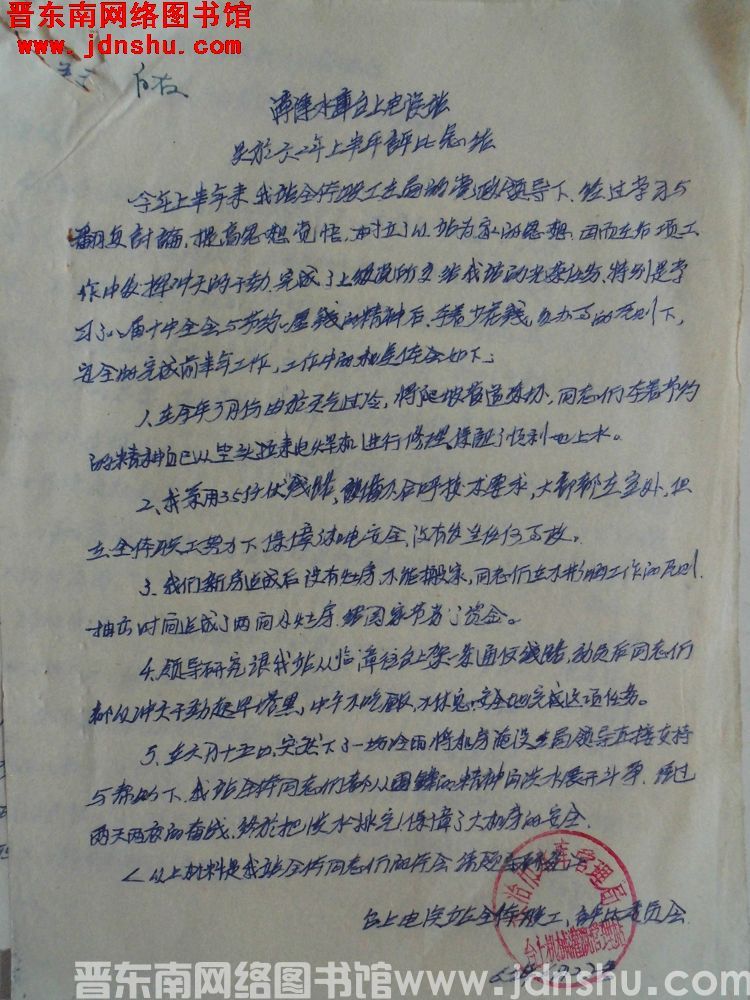 晋东南网络图书馆
www.jdnshu.com
漳泽水库台上电灌站
关於六二年上半年评比总结
今年上半年来我站全体职工在局的党政领导下、经过学习与
翻复討論,提高思想觉悟,树立了以站为家的思想、因而在各项工
作中发挥冲天的干劲,完成了上级党所交给我站的光荣任务、特别是学
习了八届十中全会与节约一厘钱的精神后、本着少花钱,多办事的原则下,
安全的完成前半年工作,工作中的和是体会如下:
1.在今年3月份由於天气过冷,将爬坡管道冻坏,同志们本着节约
的精神自己从堂头拉来电焊机进行修理,保証了顺利地上水。
2.我采用35仟伏线路,設備不合呼技术要求,大部都在室外,但
在全体职工努力下保障了供电安全,没有发生任何事故。
3.我们新房造成后没有灶房,不能搬家,同志们在不影响工作的原则
抽出时间造成了两间灶房,给国家节约了资金。
4.领导研究让我站从临漳往台上架一条通仪线路,动员后同志们
都以冲天干劲起早搭黑,中午不吃飯,不休息,安全地完成这项任务。
5.在六月十五日,突然下了一场冷雨将机房淹没在局领导直接支持
与帮助下,我站全体同志们都以困难的精神向洪水展开斗争,经过
两天两夜的奋战,终於把洪水排完,保障了大机房的安全.
以上材料是我站全体同志们的体会请领导
台上电灌站全体职工,評比委员会
库管理局
晋东南网络图书馆 www.jdnshu.com